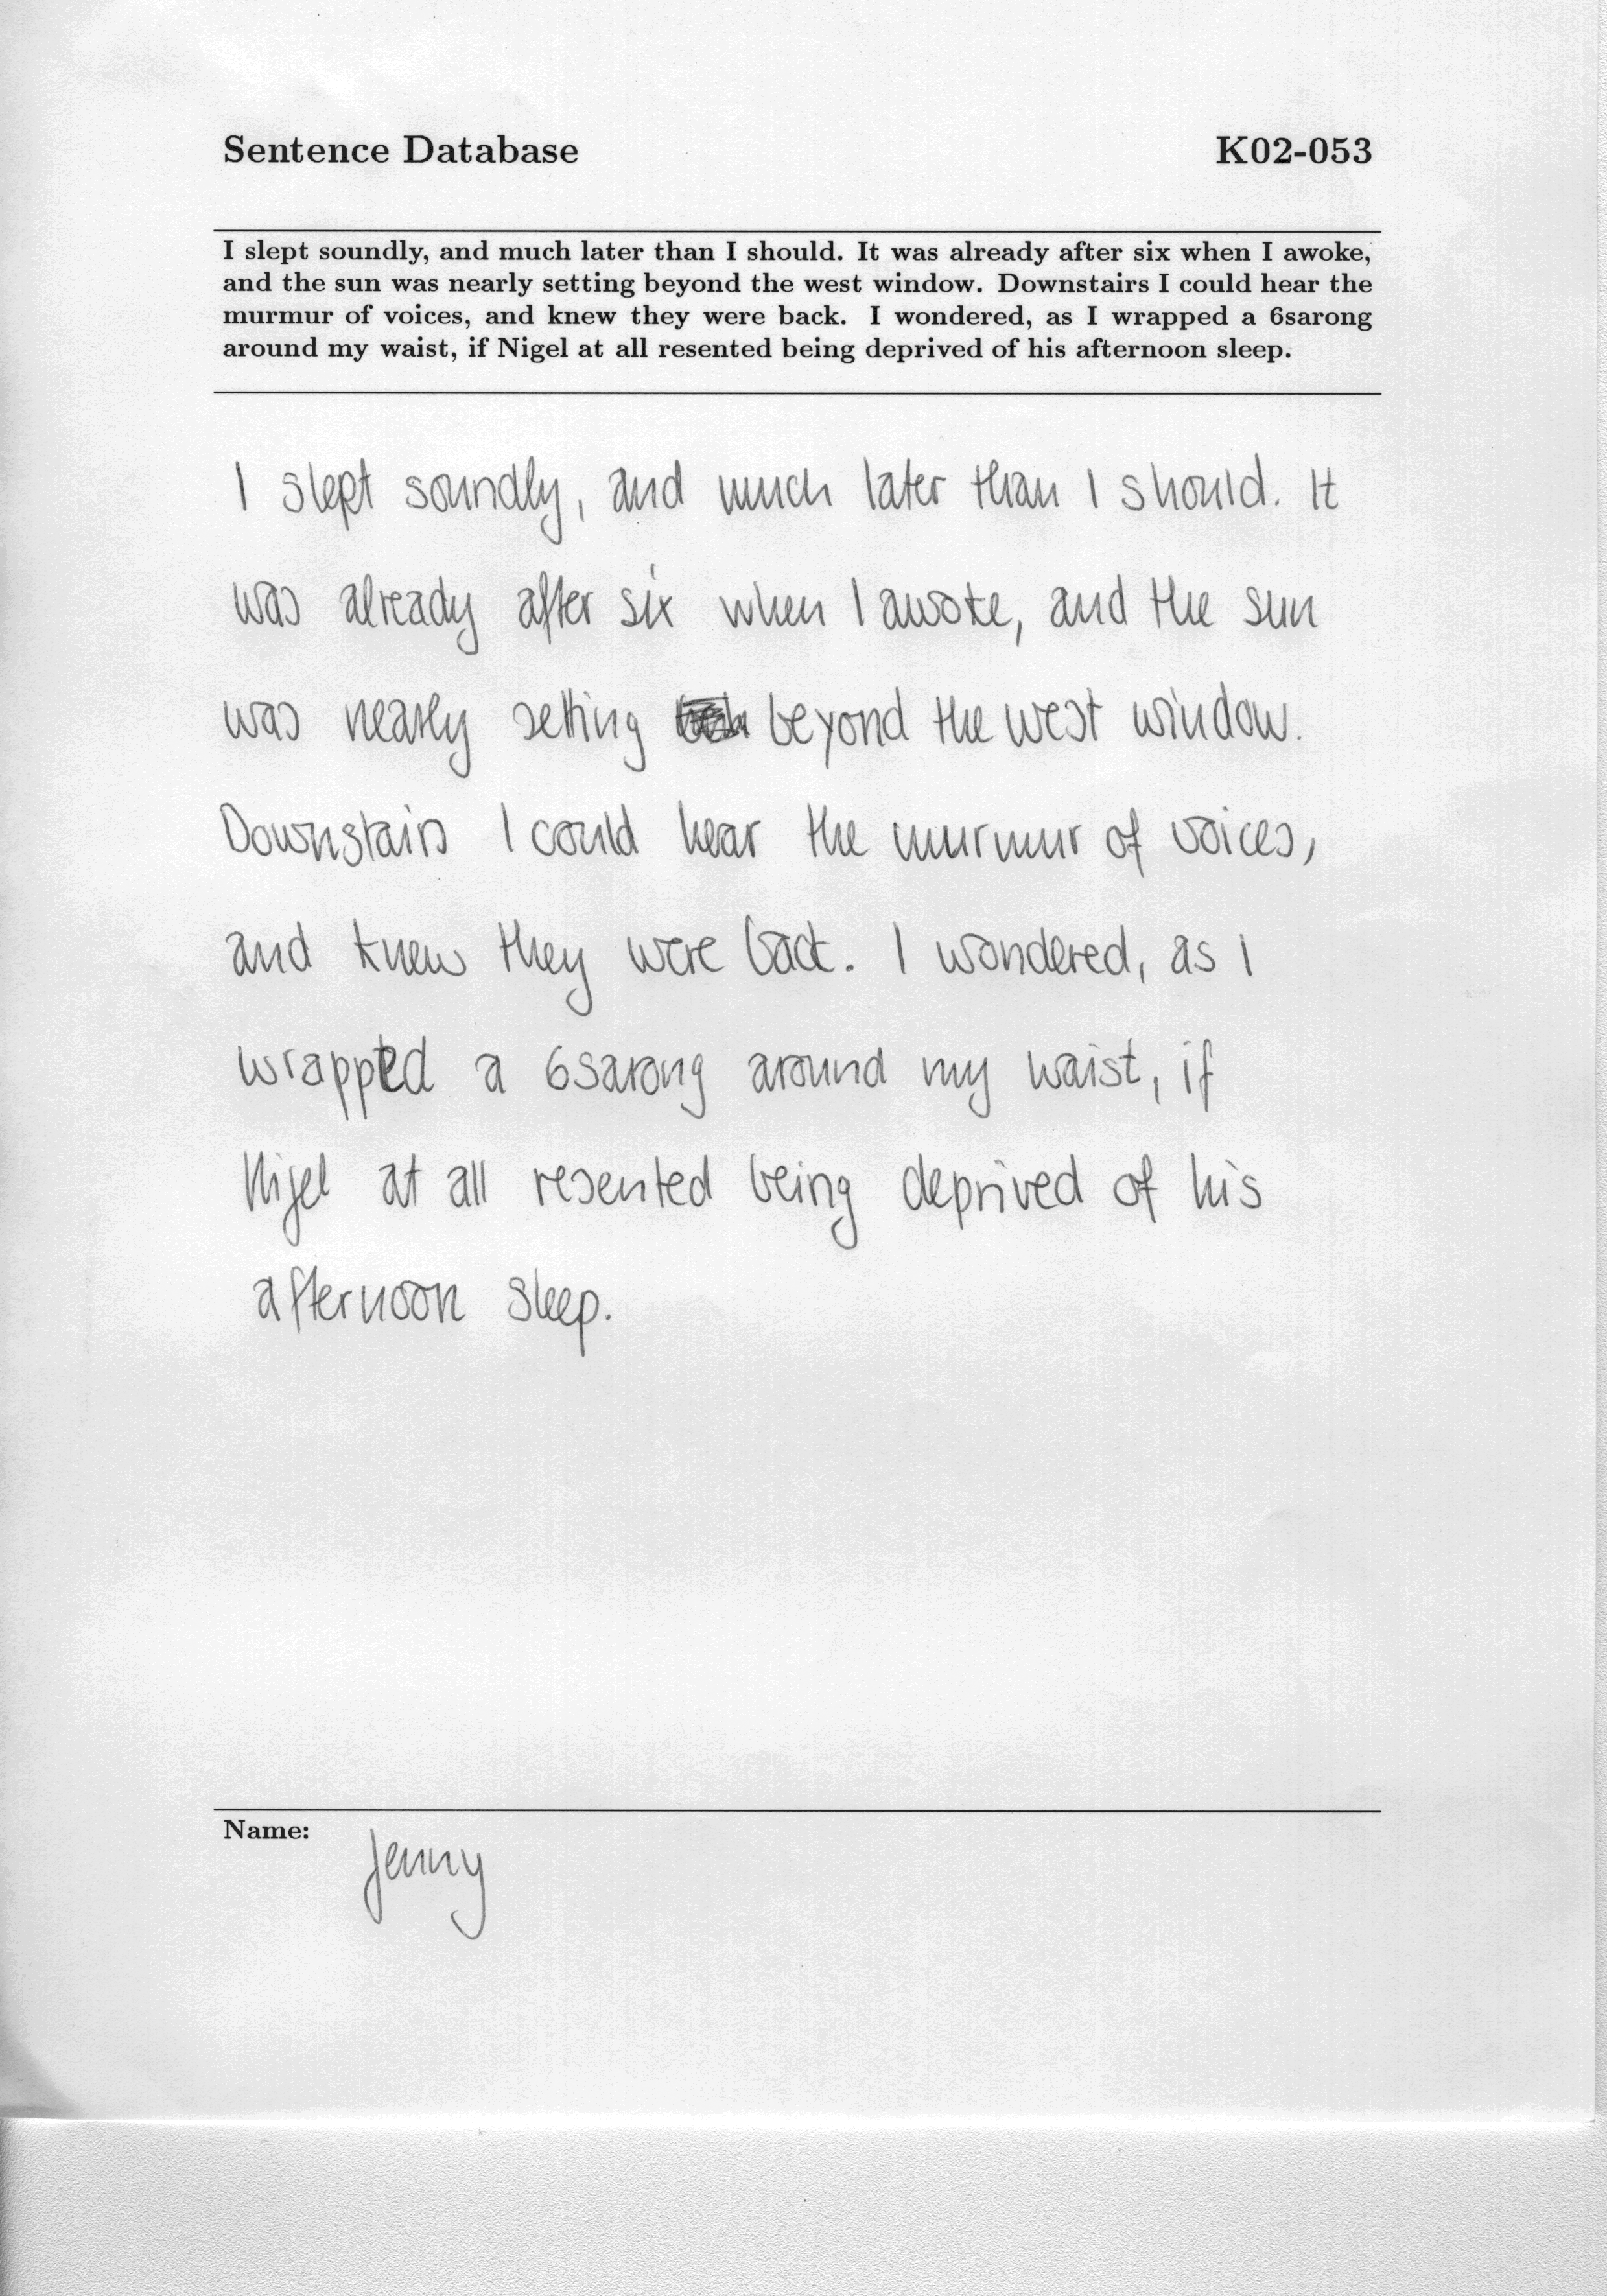 Sentence Database K02-053
I slept soundly, and much later than I should. It was already after six when I awoke,
and the sun was nearly setting beyond the west window. Downstairs I could hear the
murmur of voices, and knew they were back. I wondered, as I wrapped a 6sarong
around my waist, if Nigel at all resented being deprived of his afternoon sleep.
I slept soundly, and much later than I should. It
was already after six when I awoke, and the sun
was nearly setting beyond the west window.
Downstairs I could hear the murmur of voices,
and knew they were back. I wondered, as I
wrapped a 6sarong around my waist, if
Nigel at all resented being deprived of his
afternoon sleep.
Name: Jenny